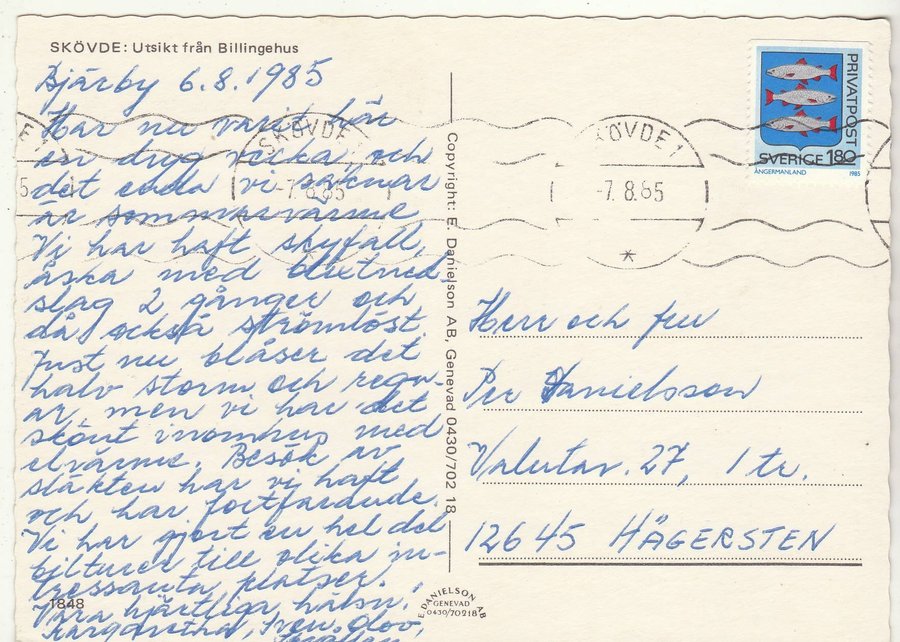 SKÖVDE: Utsikt från Billingehus
Bjärby 6.8.1985
Har nu varit här
en dryg vecka, och
det enda vi saknar
är sommarvärme
Vi har haft skyfall,
åska med blixtned
slag 2 gånger och
då också strömlöst.
Just nu blåser det
halv storm och regn-
ar, men vi har det
skönt inomhus med
elvärme. Besök av
släkten har vi haft
och har fortfarande.
Vi har gjort en hel del
bilturer till olika in-
tressanta platser.
Våra hjärtliga hälsn.
Margaretha, Sven-Olov,
1848
Copyright: E. Danielson AB, Genevad 0430/702 18
E. DANIELSON AB
GENEVAD
0430/70218
PRIVATPOST
SVERIGE 180
ÅNGERMANLAND 1985
SKÖVDE 1
-7.8.85
SKÖVDE 1
-7.8.85
*
Herr och fru
Per Danielsson
Valutav. 27, 1 tr.
12645 HÄGERSTEN